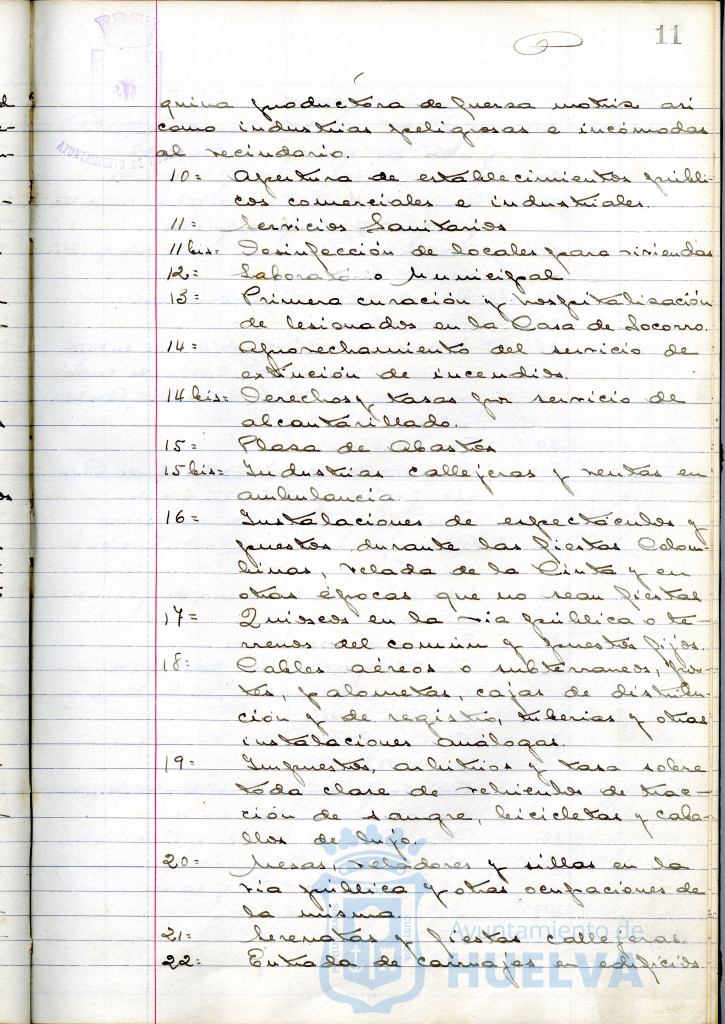 11
quina productora de fuersa motris asi
como industrias peligrosas e incómodas
al vecindario.
10= Apertura de establecimientos públi-
cos comerciales e industriales.
11= Servicios Sanitarios
11 bis= Desinfección de locales para viviendas
12= Laboratório Municipal
13= Primera curación y hospitalisación
de lesionados en la Casa de Socorro.
14= Aprovechamiento del servicio de
extinción de incendios.
14 bis= Derechos y tasas por servicio de
alcantarillado.
15= Plasa de Abastos
15 bis= Industrias callejeras y ventas en
ambulancia.
16= Instalaciones de espectáculos y
puestos durante las fiestas Colom-
binas, velada de la Cinta y en
otras épocas que no sean fiestas
17= Quioscos en la via pública o te-
rrenos del común y puestos fijos.
18= Cables aéreos o subterraneos, pos-
tes, palometas, cajas de distribu-
ción y de registro, tuberias y otras
instalaciones análogas.
19= Impuestos, arbitrios y tasa sobre
toda clase de vehiculos de trac-
ción de sangre, bicicletas y caba-
llos de lujo.
20= Mesas, veladores y sillas en la
via pública y otras ocupaciones de
la misma.
21= Serenatas y fiestas callejeras.
22= Entrada de carruajes en edificios
Ayuntamiento de
HUELVA